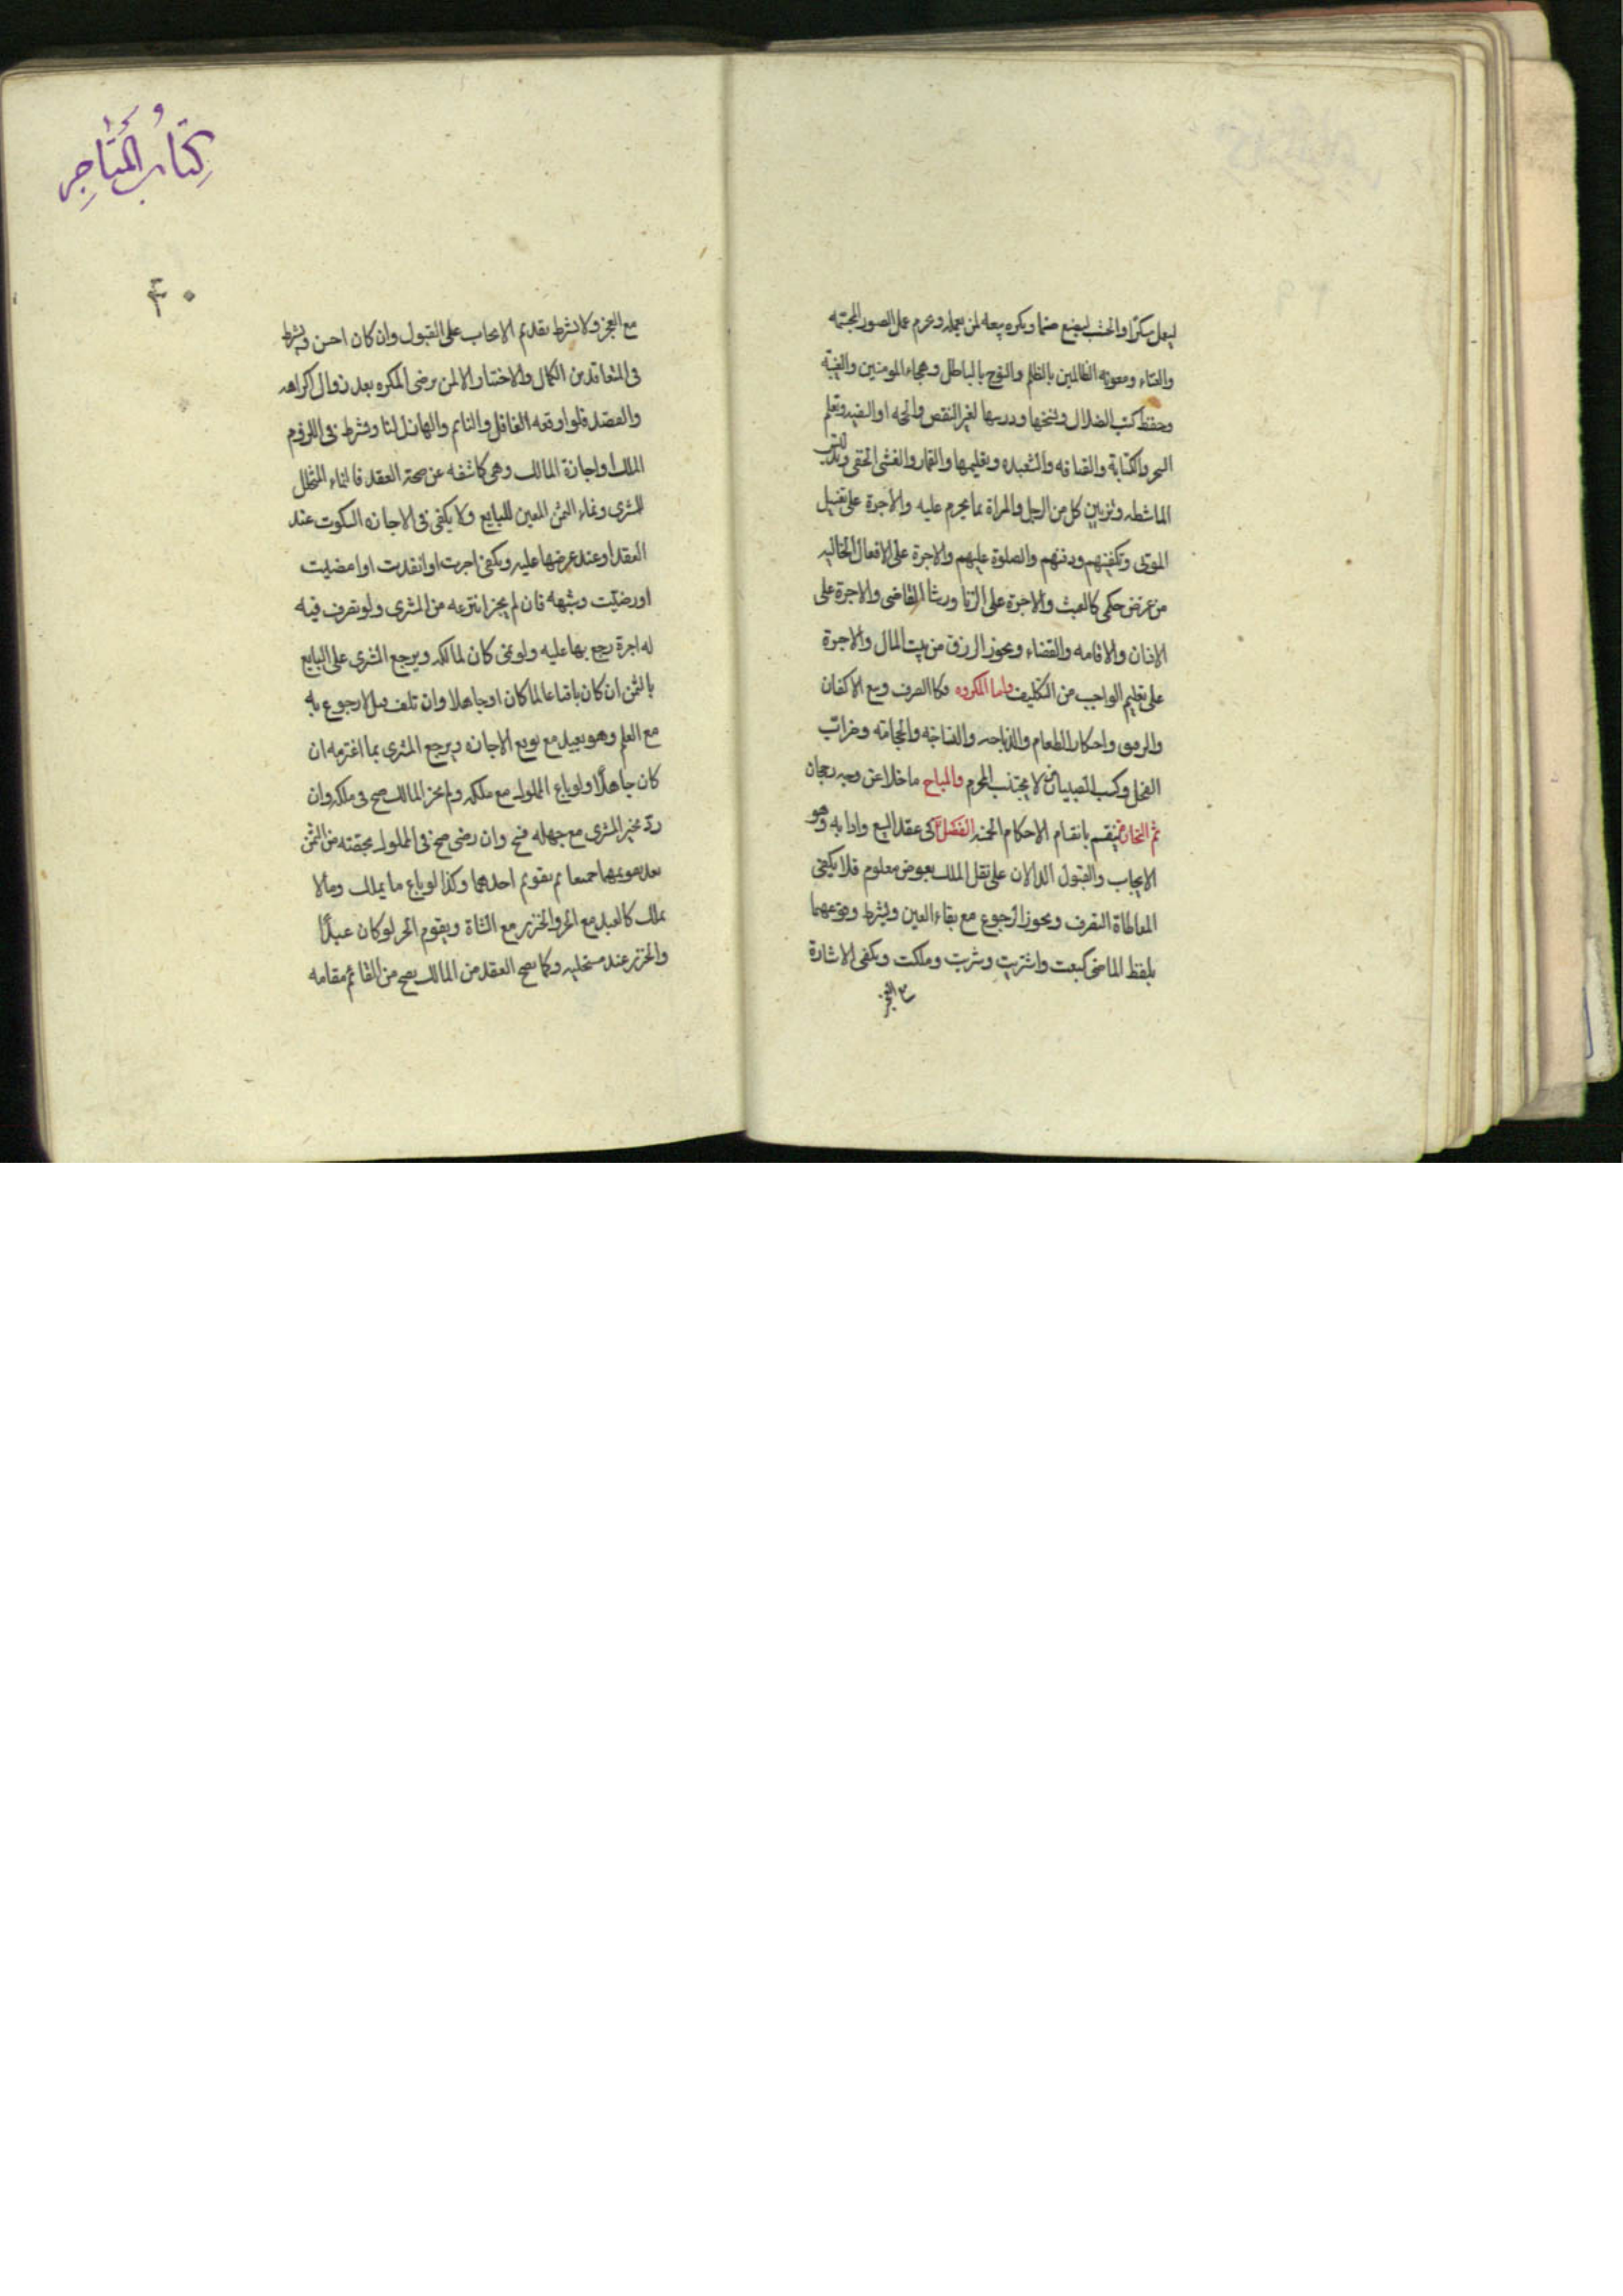 ليعمل مسكرا والخشب ليصنع صنما ويكره بيعه لمن يعمله ويحرم عمل الصور المجسمه
والغناء ومعونه الظالمين بالظلم والنوح بالباطل وهجاء المومنين والغيبة
وحفظ كتب الضلال ونسخها ودرسها لغير النقض والحجه او التقيه وتعلم
السحر والكهانة والقيافه والشعبده وتعليمها والقمار والغش الخفى وتدليس
الماشطه وتزيين كل من الرجل والمراة بما يحرم عليه والاجرة على تغسيل
الموتى وتكفينهم ودفنهم والصلوة عليهم والاجرة على الافعال الخاليه
من غرض حكمى كالعبث والاجرة على الزنا ورشا القاضى والاجرة على
الاذان والاقامه والقضاء ويجوز الرزق من بيت المال والاجرة
على تعليم الواجب من التكليف واما المكروه فكالصرف وبيع الاكفان
والرقيق واحتكار الطعام والذباحه والنساجة والحجامة وضراب
الفحل وكسب الصبيان لا يجتنب المحرم والمباح ما خلا عن وجه رجحان
ثم التجارة تنقسم بانقسام الاحكام الخمسه الفصل فى عقد البيع وادابه وهو
الايجاب والقبول الدالان على نقل الملك بعوض معلوم فلا يكفى
المعاطاة التصرف ويجوز الرجوع مع بقاء العين ويشترط وقوعهما
بلفظ الماضى كبعت واشتريت وشريت وملكت وتكفى الاشارة
مع العجز
كِتَابُ المَتَاجِرِ
۴۰
مع العجز ولا يشترط تقديم الايجاب على القبول وان كان احسن ويشترط
فى المتعاقدين الكمال والاختيار الا لمن يرضى المكره بعد زوال اكراهه
والقصد فلو اوقعه الغافل والنايم والهازل لغا ويشترط فى اللزوم
الملك او اجازة المالك وهى كاشفه عن صحة العقد فالنماء المتخلل
للمشترى ونماء الثمن المعين للبايع ولا يكفى فى الاجازه السكوت عند
العقد او عند عرضها عليه ويكفى اجزت او انفذت او امضيت
او رضيت وشبهه فان لم يجز انتزعه من المشترى ولو تصرف فيه
له اجرة رجع بها عليه ولو نمى كان لمالكه ويرجع المشترى على البايع
بالثمن ان كان باقيا عالما كان او جاهلا وان تلف قيل لا رجوع به
مع العلم وهو بعيد مع توقع الاجازه ويرجع المشترى بما اغترمه ان
كان جاهلا ولو باع المملوك مع ملكه ولم يجز المالك صح فى ملكه وان
رد تخير المشترى مع جهله فسخ وان رضى صح فى المملوك بحصته من الثمن
بعد تقويمهما جميعا ثم تقويم احدهما وكذا لو باع ما يملك وما لا
يملك كالعبد مع الحر والخنزير مع الشاة ويقوم الحر لو كان عبدا
والخنزير عند مستحليه وكما يصح العقد من المالك يصح من القائم مقامه